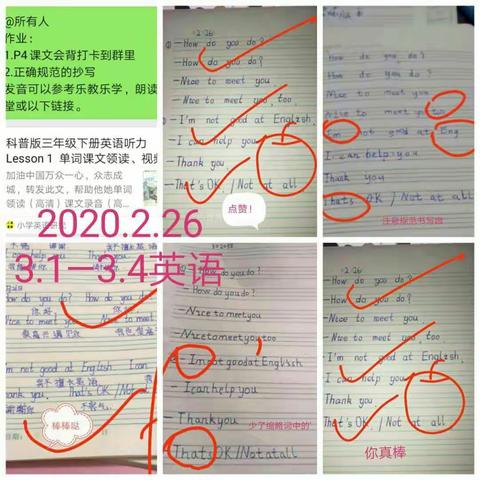 @所有人
作业：
1.P4课文会背打卡到群里
2.正确规范的抄写
发音可以参考乐教乐学，朗读
堂或以下链接。
科普版三年级下册英语听力
Lesson 1 单词课文领读、视频
加油中国万众一心，众志成
城，转发此文，帮助他她单词
领读（高清）课文录音（高...
小学英语
2.26
—How do you do?
—How do you do?
—Nice to meet you
—Nice to meet you, too,
—I'm not good at English,
—I can help you
—Thank you,
—That's OK / Not at all
点赞！
How do you do,
How do you do?
Nice to meet you
Nice to meet you too
Im not good at Eng
I can help you
Thank you
Thats OK / Not at all
注意规范书写
2020.2.26
3.1—3.4英语
How do you do? How do you
Nice to meet you, Nice to meet
I'm not good at English. I can
Thank you, That's OK / Not at
棒棒哒
—How do you do?
—How do you do?
—Nice to meet you
—Nice to meet you too
—Im not good at English
—I can help you
—Thank you
Thats OK / Not at all
少了缩略词中的'
2.26
How do you do?
How do you do?
Nice to meet you
Nice to meet you, too,
I'm not good at English,
I can help you
Thank you
That's OK / Not at all
你真棒